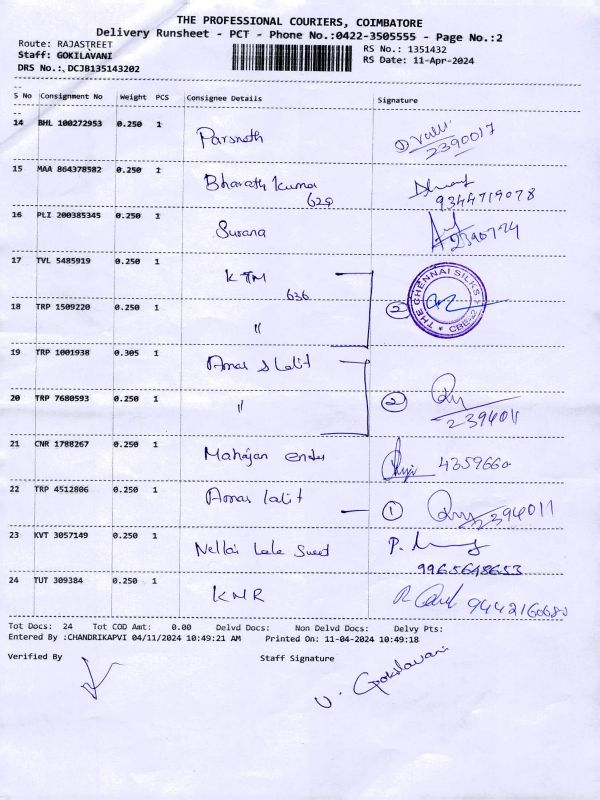 THE PROFESSIONAL COURIERS, COIMBATORE
Delivery Runsheet - PCT - Phone No.:0422-3505555 - Page No.:2
Route: RAJASTREET RS No.: 1351432
Staff: GOKILAVANI RS Date: 11-Apr-2024
DRS No.:.DCJB135143202
S No Consignment No Weight PCS Consignee Details Signature
14 BHL 100272953 0.250 1 Parsnath
2390017
15 MAA 864378582 0.250 1 Bharath Kumar
620 9344719078
16 PLI 200385345 0.250 1 Surana
17 TVL 5485919 0.250 1 KTM
636
THE CHENNAI SILKS CBE-2
18 TRP 1509220 0.250 1 " 2
19 TRP 1001938 0.305 1 Amar Lalit
20 TRP 7680593 0.250 1 " 2
239401
21 CNR 1788267 0.250 1 Mahajan 4359660
22 TRP 4512806 0.250 1 Amar Lalit 1 2394011
23 KVT 3057149 0.250 1 Nellai Lala Sweet P.
9965648653
24 TUT 309384 0.250 1 KNR
Tot Docs: 24 Tot COD Amt: 0.00 Delvd Docs: Non Delvd Docs: Delvy Pts:
Entered By :CHANDRIKAPVI 04/11/2024 10:49:21 AM Printed On: 11-04-2024 10:49:18
Verified By Staff Signature
V. Gokilavani